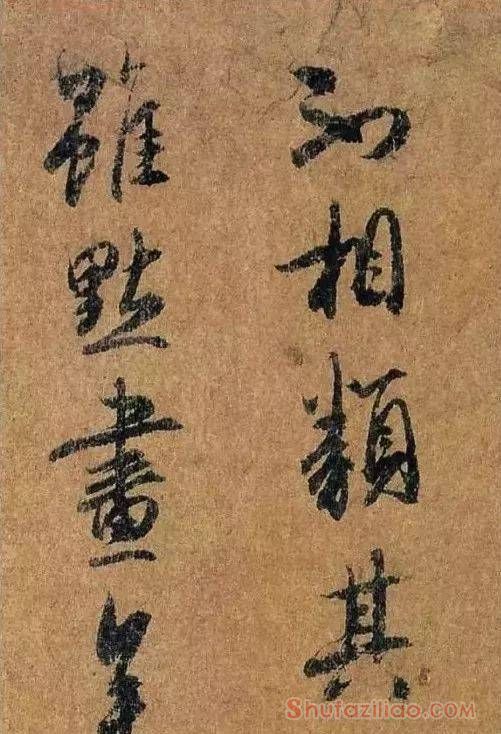 不相類其
雖點畫
Shufaziliao.com